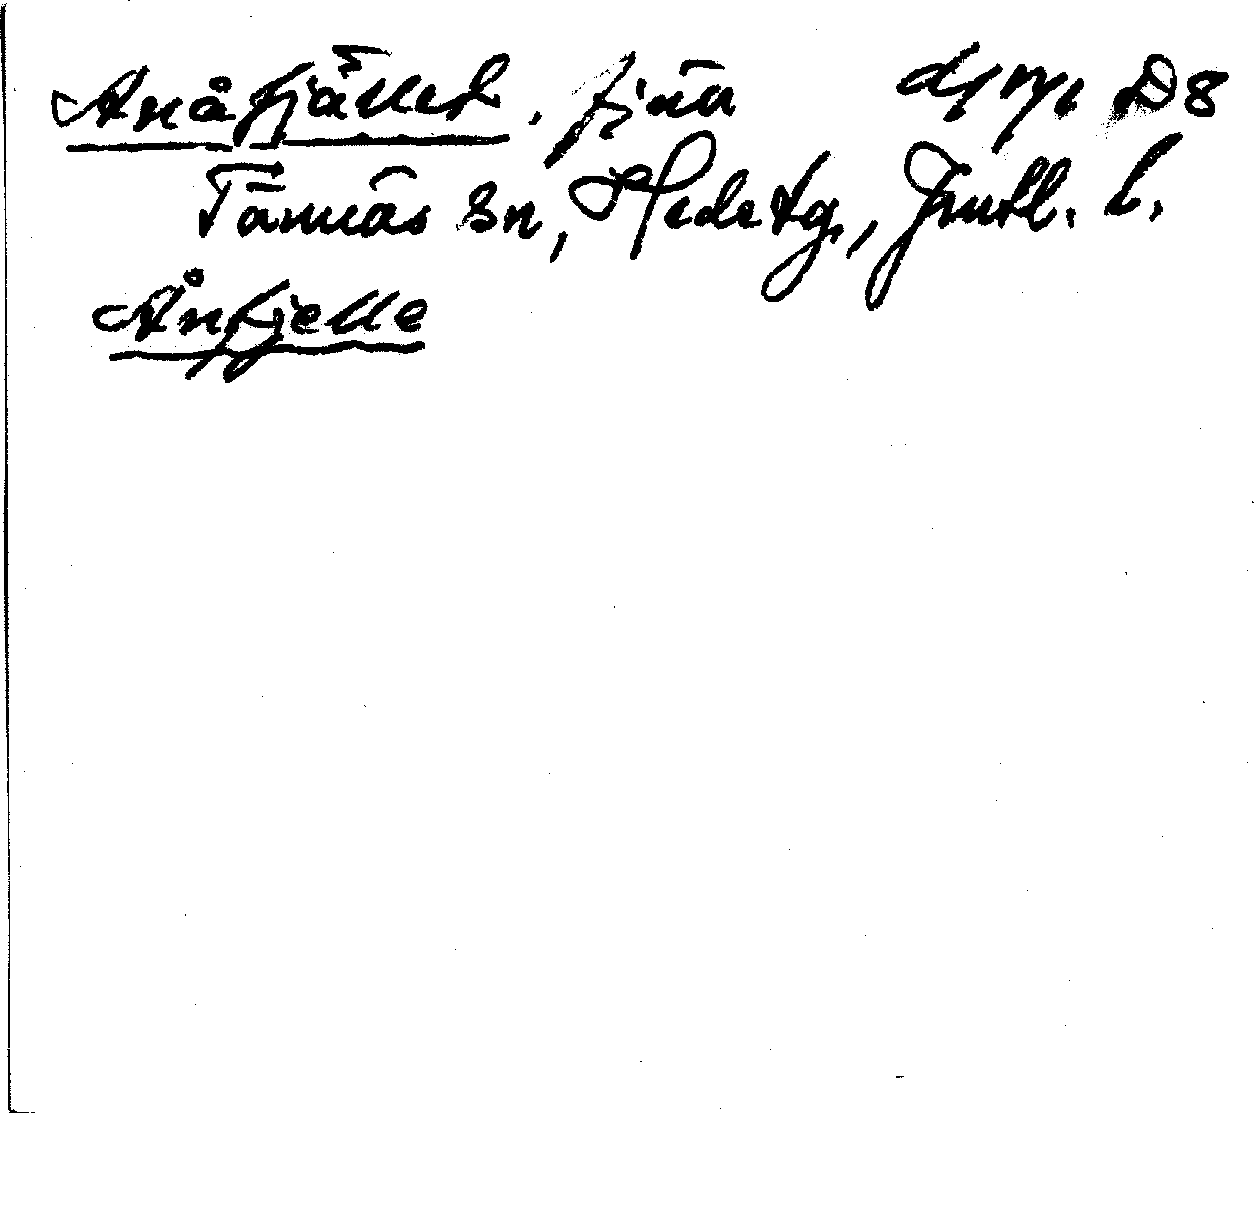 Anåfjället, fjäll D8
Tännäs sn, Hedetg., Jämtl. l.
Ånfjelle